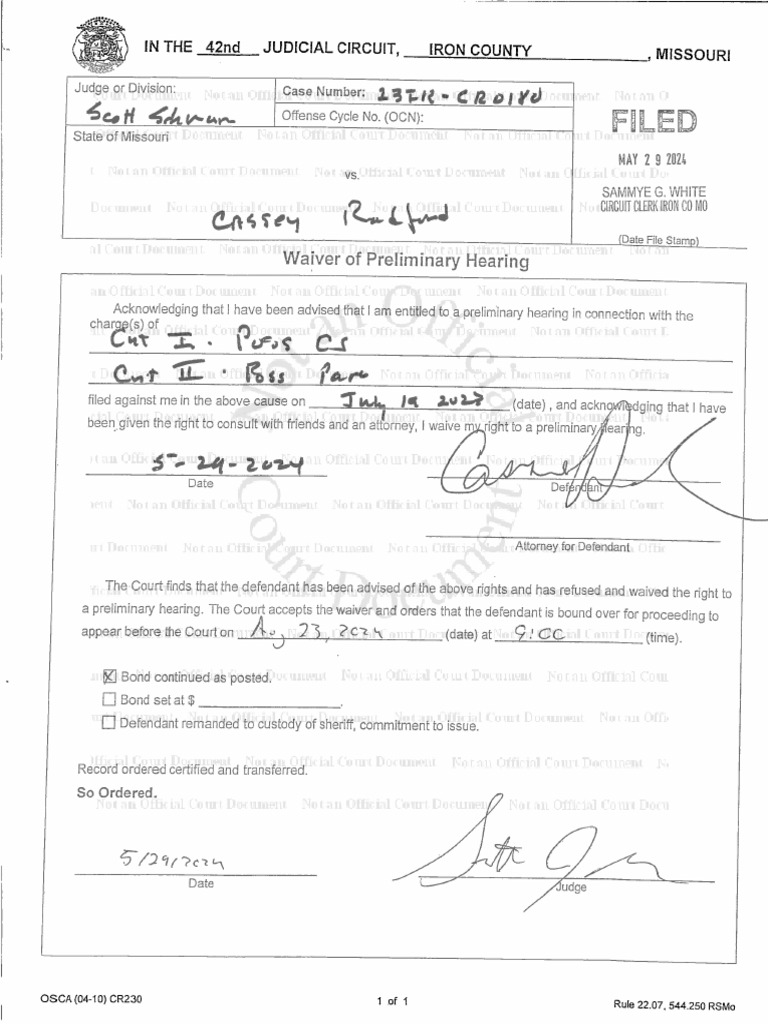 IN THE 42nd JUDICIAL CIRCUIT, IRON COUNTY, MISSOURI
Judge or Division:
Scott
Case Number: 23IR-CR
Offense Cycle No. (OCN):
State of Missouri
vs.
CASSEY Radford
FILED
MAY 29 2024
SAMMYE G. WHITE
CIRCUIT CLERK IRON CO MO
(Date File Stamp)
Waiver of Preliminary Hearing
Acknowledging that I have been advised that I am entitled to a preliminary hearing in connection with the
charge(s) of
Cnt I. CS
Cnt II. Poss Para
filed against me in the above cause on July 19 2023 (date), and acknowledging that I have
been given the right to consult with friends and an attorney, I waive my right to a preliminary hearing.
5-29-2024
Date
Defendant
Attorney for Defendant
The Court finds that the defendant has been advised of the above rights and has refused and waived the right to
a preliminary hearing. The Court accepts the waiver and orders that the defendant is bound over for proceeding to
appear before the Court on Aug 23, 2024 (date) at 9:00 (time).
Bond continued as posted.
Bond set at $
Defendant remanded to custody of sheriff, commitment to issue.
Record ordered certified and transferred.
So Ordered.
5/29/2024
Date
Judge
Not an Official Court Document
OSCA (04-10) CR230
1 of 1
Rule 22.07, 544.250 RSMo